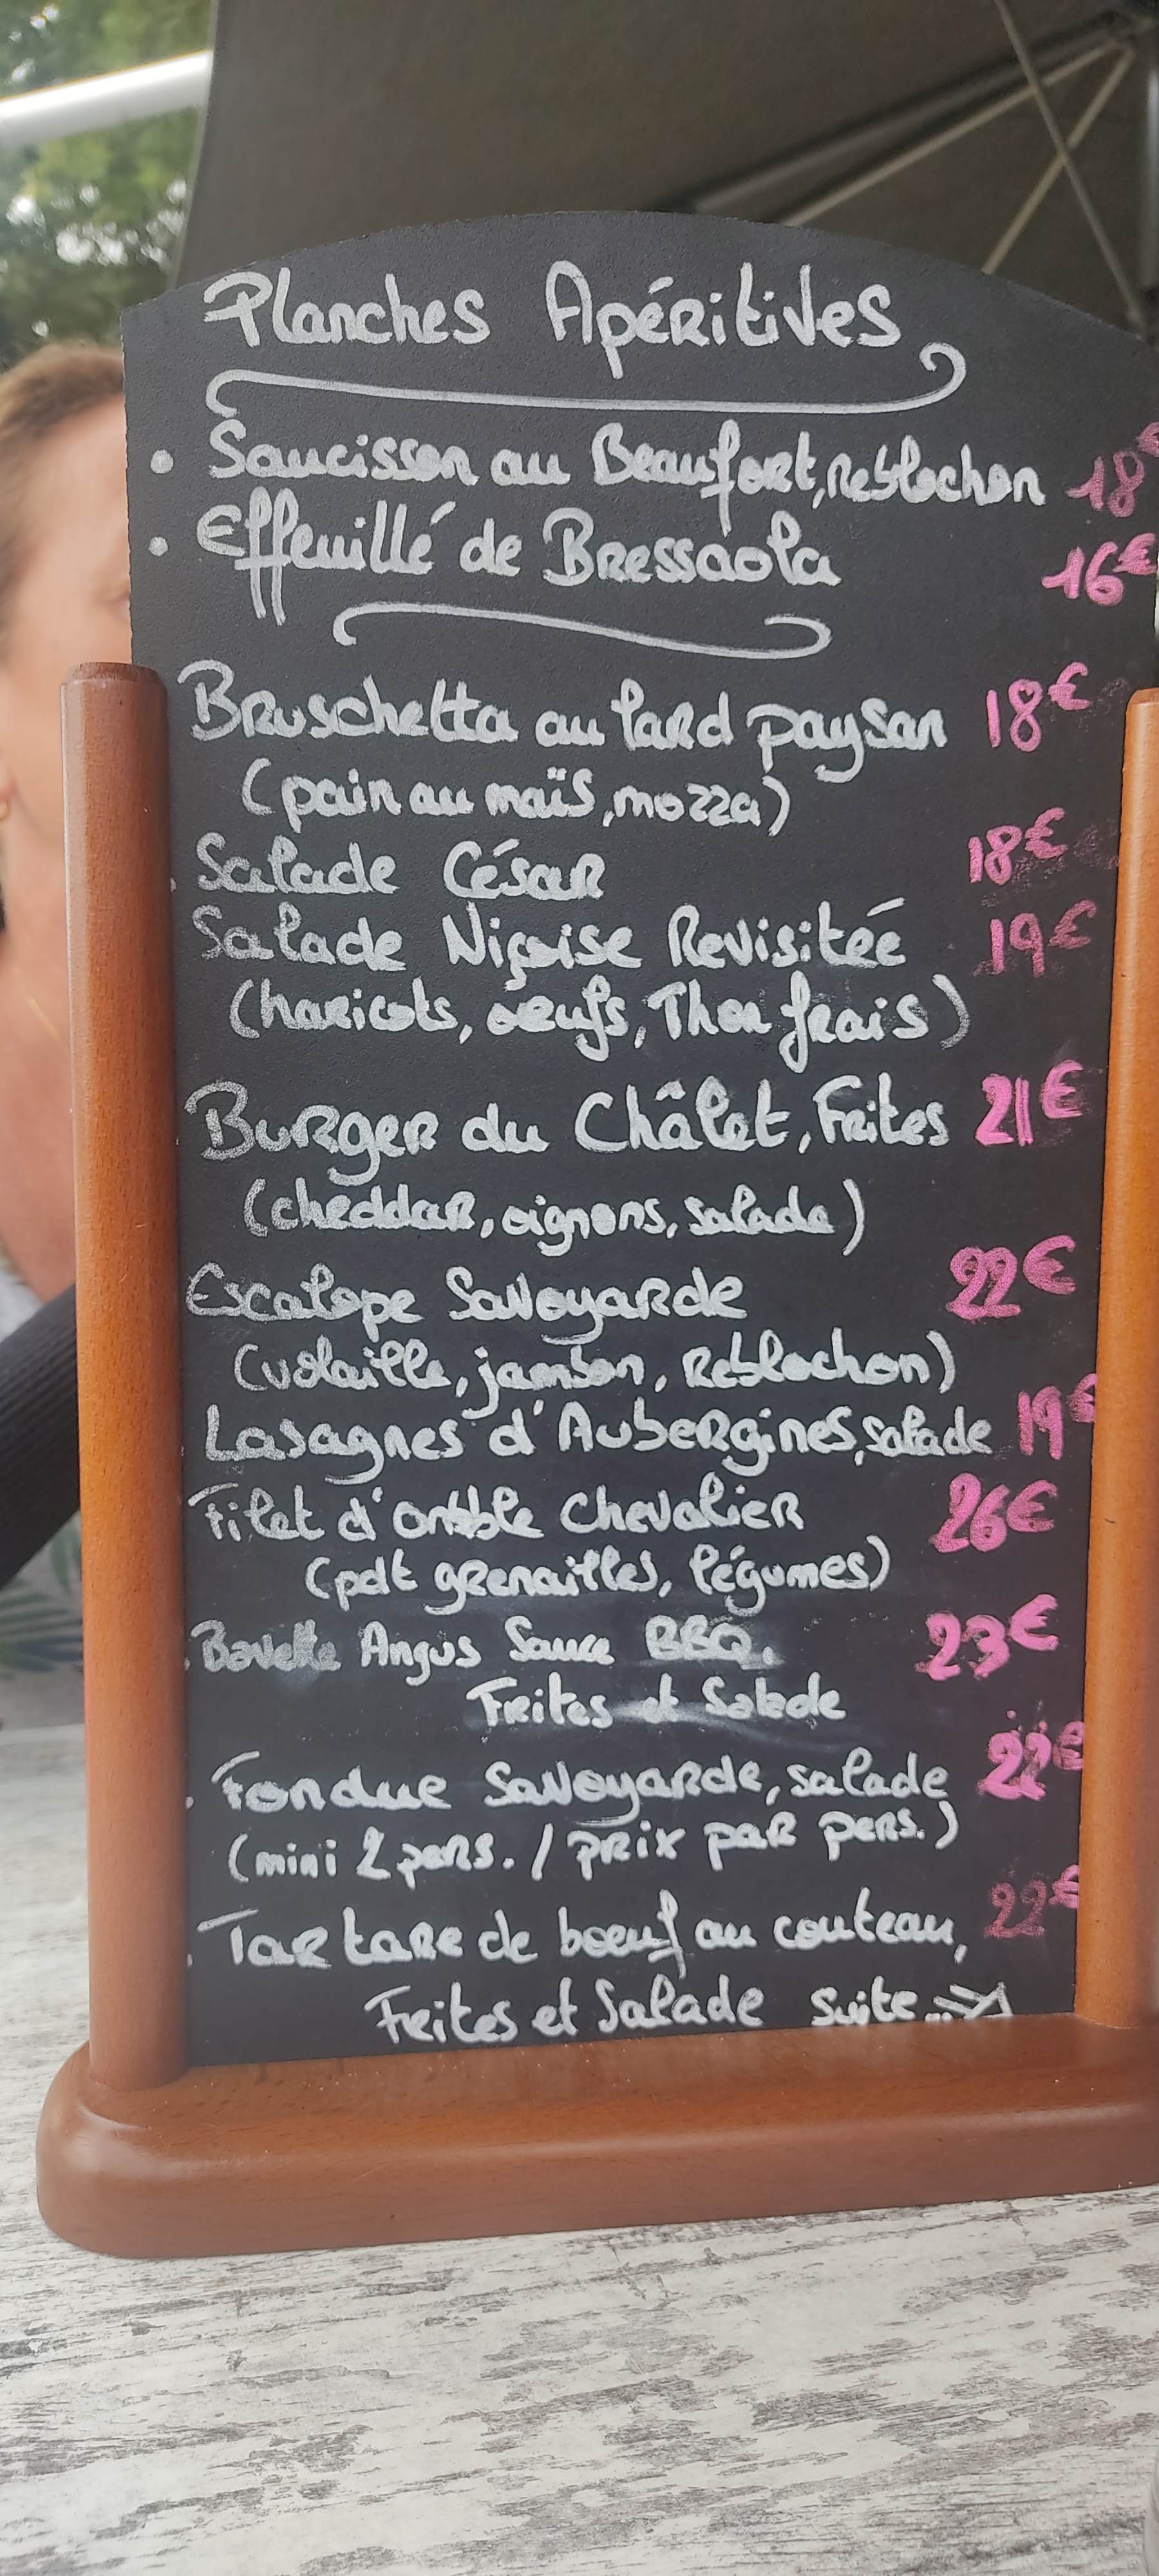 Planches Apéritives
• Saucisson au Beaufort, Reblochon 18€
• Effeuillé de Bressaola 16€
Bruschetta au lard paysan 18€
(pain au maïs, mozza)
. Salade César 18€
Salade Niçoise Revisitée 19€
(haricots, oeufs, Thon frais)
Burger du Châlet, Frites 21€
(cheddar, oignons, salade)
Escalope Savoyarde 22€
(volaille, jambon, Reblochon)
Lasagnes d'Aubergines, salade 19€
Filet d'omble chevalier 26€
(pdt grenailles, légumes)
. Bavette Angus Sauce BBQ. 23€
Frites et Salade
. Fondue Savoyarde, salade 22€
(mini 2 pers. / prix par pers.)
. Tartare de boeuf au couteau, 22€
Frites et Salade suite...